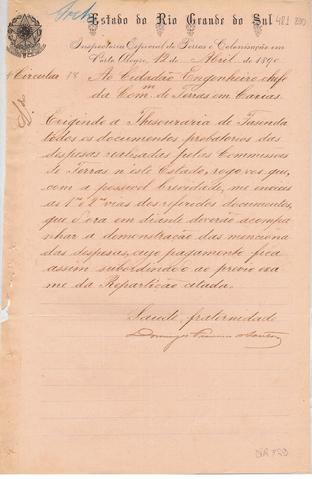 Estado do Rio Grande do Sul
481 200
Inspectoria Especial de Terras e Colonisação em
Porto Alegre, 12 de Abril de 1890
Circular 18
Ao Cidadão Engenheiro chefe
da Com.m de Terras em Caxias.
Exigindo a Thesouraria de Fazenda
todos os documentos probatorios das
despesas realizadas pelas Commissões
de Terras n'este Estado, rogo vos que,
com a possivel brevidade, me envieis
as 1as e 2as vias dos referidos documentos,
que d'ora em diante deverão acompa
nhar a demonstração das menciona
das despesas, cujo pagamento fica
assim subordinado ao previo exa
me da Repartição citada.
Saude, fraternidade
Domingos